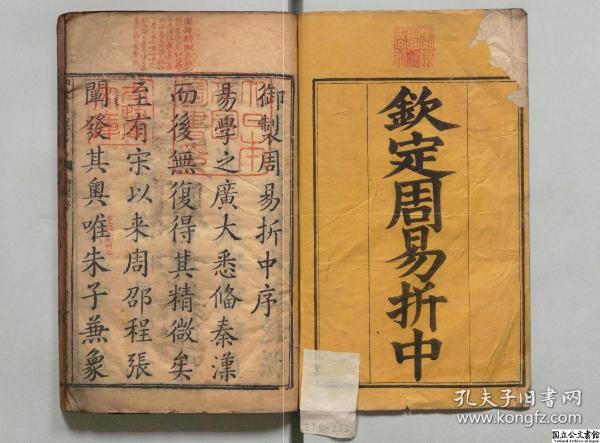 欽定周易折中
御製周易折中序
易學之廣大悉備秦漢
而後無復得其精微矣
至有宋以来周邵程張
闡發其奥唯朱子兼象
日本
圖書
孔夫子旧书网
kongfz.com
国立公文書館
National Archives of Japan